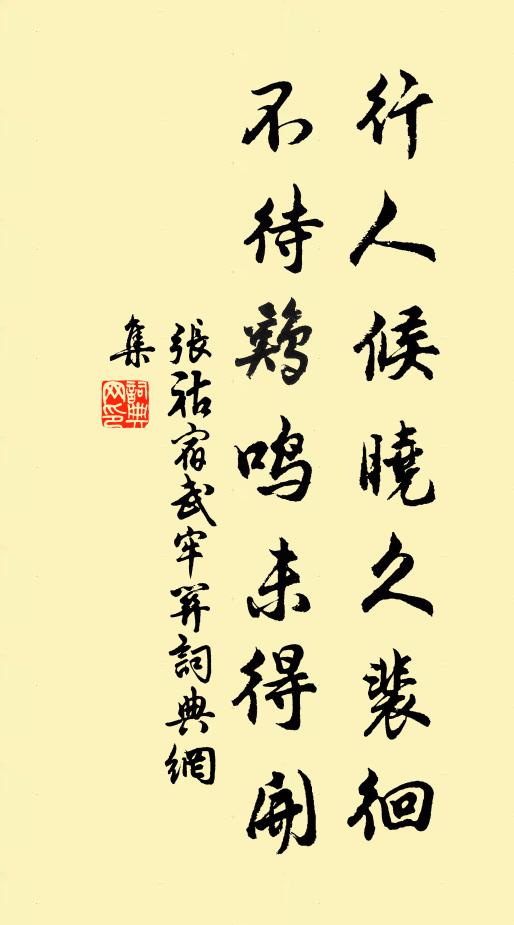 行人候曉久裴徊
不待鷄鳴未得開
張祜宿武牢關詞典網
集
詞典
网印